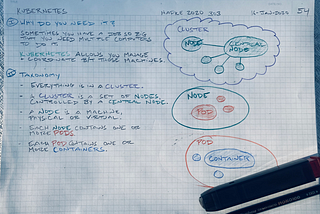 KUBERNETES
11-JAN-2020
54
① WHY DO YOU NEED IT?
SOMETIMES YOU HAVE A JOB SO BIG
THAT YOU NEED MULTIPLE COMPUTERS
TO DO IT.
KUBERNETES ALLOWS YOU MANAGE
+ COORDINATE ALL THOSE MACHINES.
② TAXONOMY
- EVERYTHING IS IN A CLUSTER.
- A CLUSTER IS A SET OF NODES,
CONTROLLED BY A CENTRAL NODE.
- A NODE IS A MACHINE,
PHYSICAL OR VIRTUAL.
EACH NODE CONTAINS ONE OR
MORE PODS.
EACH POD CONTAINS ONE OR
MORE CONTAINERS.
CLUSTER
NODE
CENTRAL
NODE
NODE
POD
POD
CONTAINER